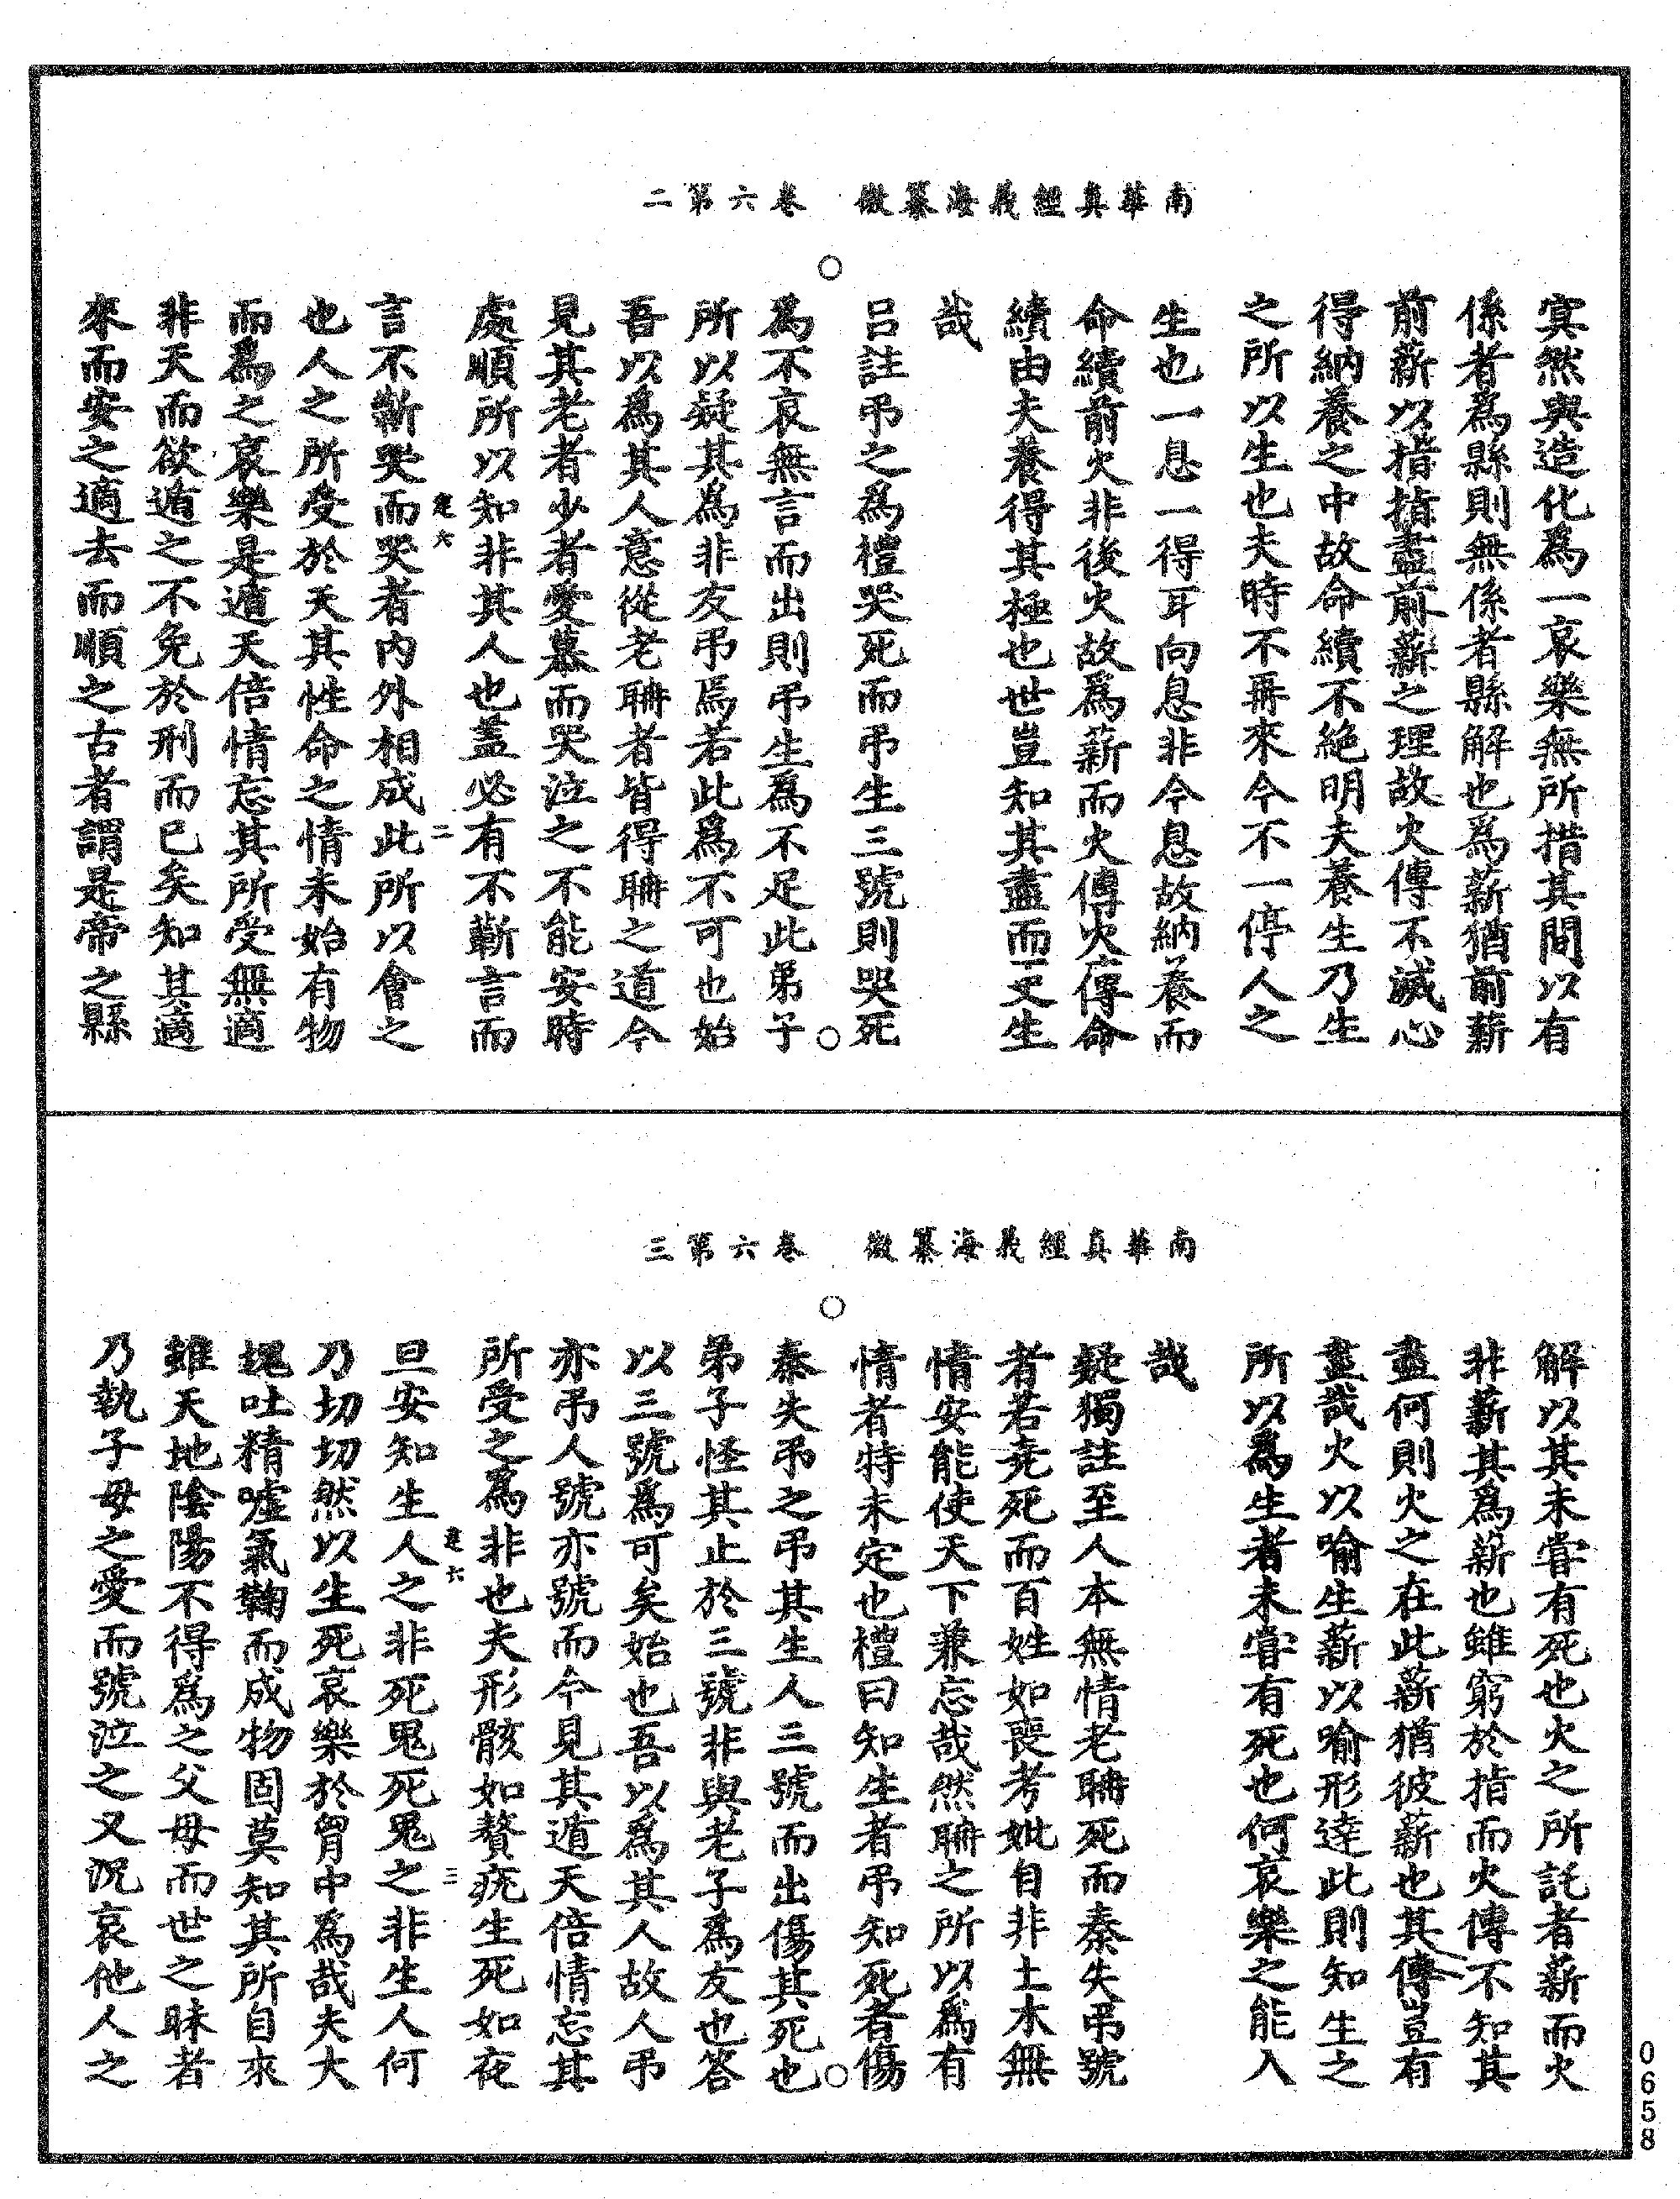 南華真經義海纂微　卷六第二
寘然與造化爲一哀樂無所措其間以有
係者爲縣則無係者縣解也爲薪猶前薪
前薪以指指盡前薪之理故火傳不滅心
得納養之中故命續不絕明夫養生乃生
之所以生也夫時不再來今不一停人之
生也一息一得耳向息非今息故納養而
命續前火非後火故爲薪而火傳火傳命
續由夫養得其極也世豈知其盡而更生
哉
呂註弔之爲禮哭死而弔生三號則哭死
爲不哀無言而出則弔生爲不足此弟子
所以疑其爲非友弔焉若此爲不可也始
吾以爲其人意從老聃者皆得聃之道今
見其老者少者愛慕而哭泣之不能安時
處順所以知非其人也蓋必有不蘄言而
言不蘄哭而哭者內外相成此所以會之
也人之所受於天其性命之情未始有物
而爲之哀樂是遁天倍情忘其所受無適
非天而欲遁之不免於刑而已矣知其適
來而安之適去而順之古者謂是帝之縣
建六
二
南華真經義海纂微　卷六第三
解以其未嘗有死也火之所託者薪而火
非薪其爲薪也雖窮於指而火傳不知其
盡何則火之在此薪猶彼薪也其傳豈有
盡哉火以喻生薪以喻形達此則知生之
所以爲生者未嘗有死也何哀樂之能入
哉
疑獨註至人本無情老聃死而秦失弔號
者若堯死而百姓如喪考妣自非土木無
情安能使天下兼忘哉然聃之所以爲有
情者特未定也禮曰知生者弔知死者傷
秦失弔之弔其生人三號而出傷其死也
弟子怪其止於三號非與老子爲友也答
以三號爲可矣始也吾以爲其人故人弔
亦弔人號亦號而今見其遁天倍情忘其
所受之爲非也夫形骸如贅疣生死如夜
旦安知生人之非死鬼死鬼之非生人何
乃切切然以生死哀樂於胷中爲哉夫大
塊吐精噓氣鞠而成物固莫知其所自來
雖天地陰陽不得爲之父母而世之昧者
乃執子母之愛而號泣之又況哀他人之
建六
三
0658